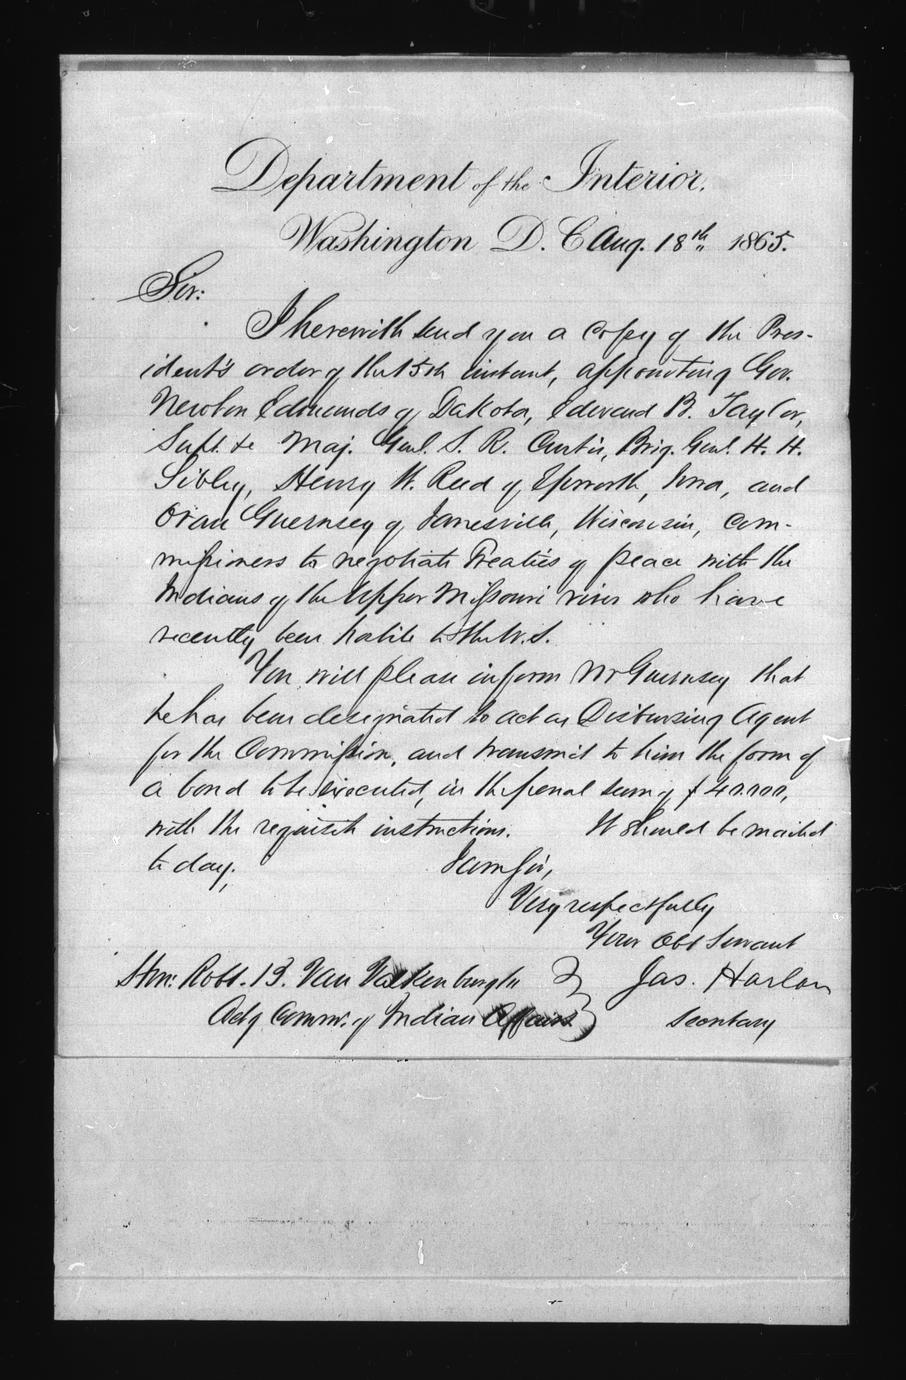 Department of the Interior.
Washington D. C. Aug. 18th 1865.
Sir:
I herewith send you a copy of the Pres-
ident's order of the 15th instant, appointing Gov.
Newton Edmunds of Dakota, Edward B. Taylor,
Supt. &c Maj. Genl. S. R. Curtis, Brig. Genl. H. H.
Sibley, Henry W. Reed of Epworth, Iowa, and
Oran Guernsey of Janesville, Wisconsin, com-
missioners to negotiate Treaties of peace with the
Indians of the Upper Missouri river who have
recently been hostile to the U.S.
You will please inform Mr Guernsey that
he has been designated to act as Disbursing Agent
for the Commission, and transmit to him the form of
a bond to be executed, in the penal sum of $
with the requisite instructions. It should be mailed
to day.
I am Sir,
Very respectfully
Your Obt Servant
Hon: Robt. B. Van Valkenburgh Jas. Harlan
Actg Commr. of Indian Affairs Secretary